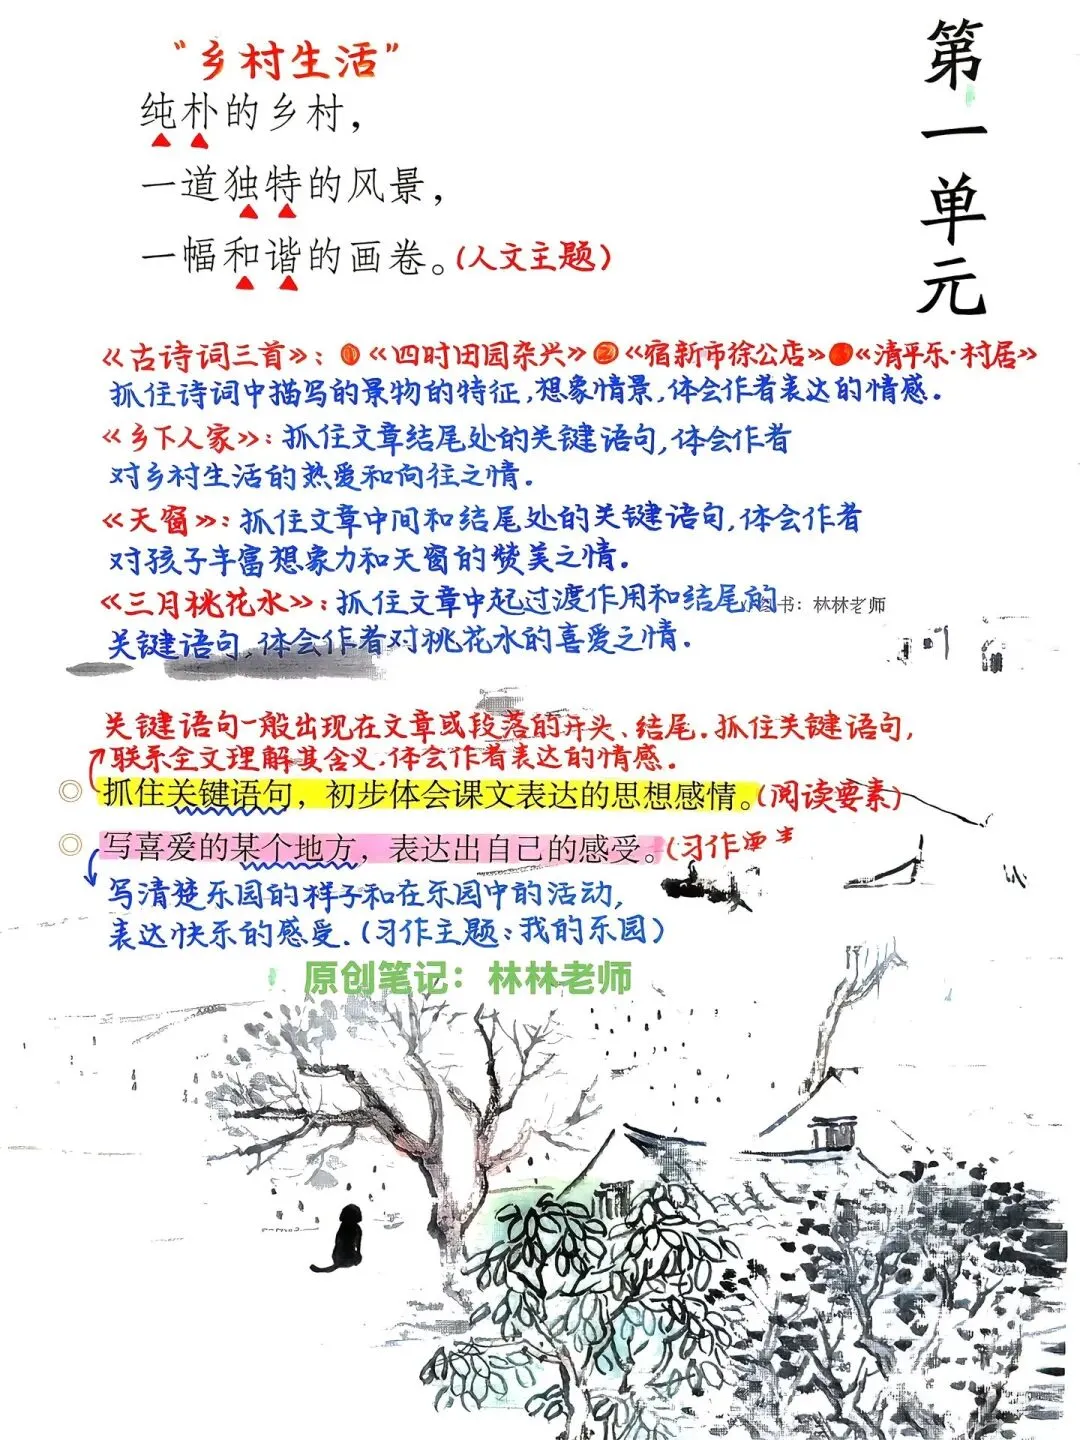 第一单元
“乡村生活”
纯朴的乡村，
一道独特的风景，
一幅和谐的画卷。(人文主题)
《古诗词三首》：①《四时田园杂兴》②《宿新市徐公店》③《清平乐·村居》
抓住诗词中描写的景物的特征,想象情景,体会作者表达的情感.
《乡下人家》：抓住文章结尾处的关键语句,体会作者
对乡村生活的热爱和向往之情.
《天窗》：抓住文章中间和结尾处的关键语句,体会作者
对孩子丰富想象力和天窗的赞美之情.
《三月桃花水》：抓住文章中起过渡作用和结尾的
书：林林老师
关键语句,体会作者对桃花水的喜爱之情.
关键语句一般出现在文章或段落的开头、结尾.抓住关键语句,
联系全文理解其含义.体会作者表达的情感.
◎ 抓住关键语句，初步体会课文表达的思想感情。(阅读要素)
◎ 写喜爱的某个地方，表达出自己的感受。(习作
写清楚乐园的样子和在乐园中的活动,
表达快乐的感受.(习作主题：我的乐园)
原创笔记：林林老师